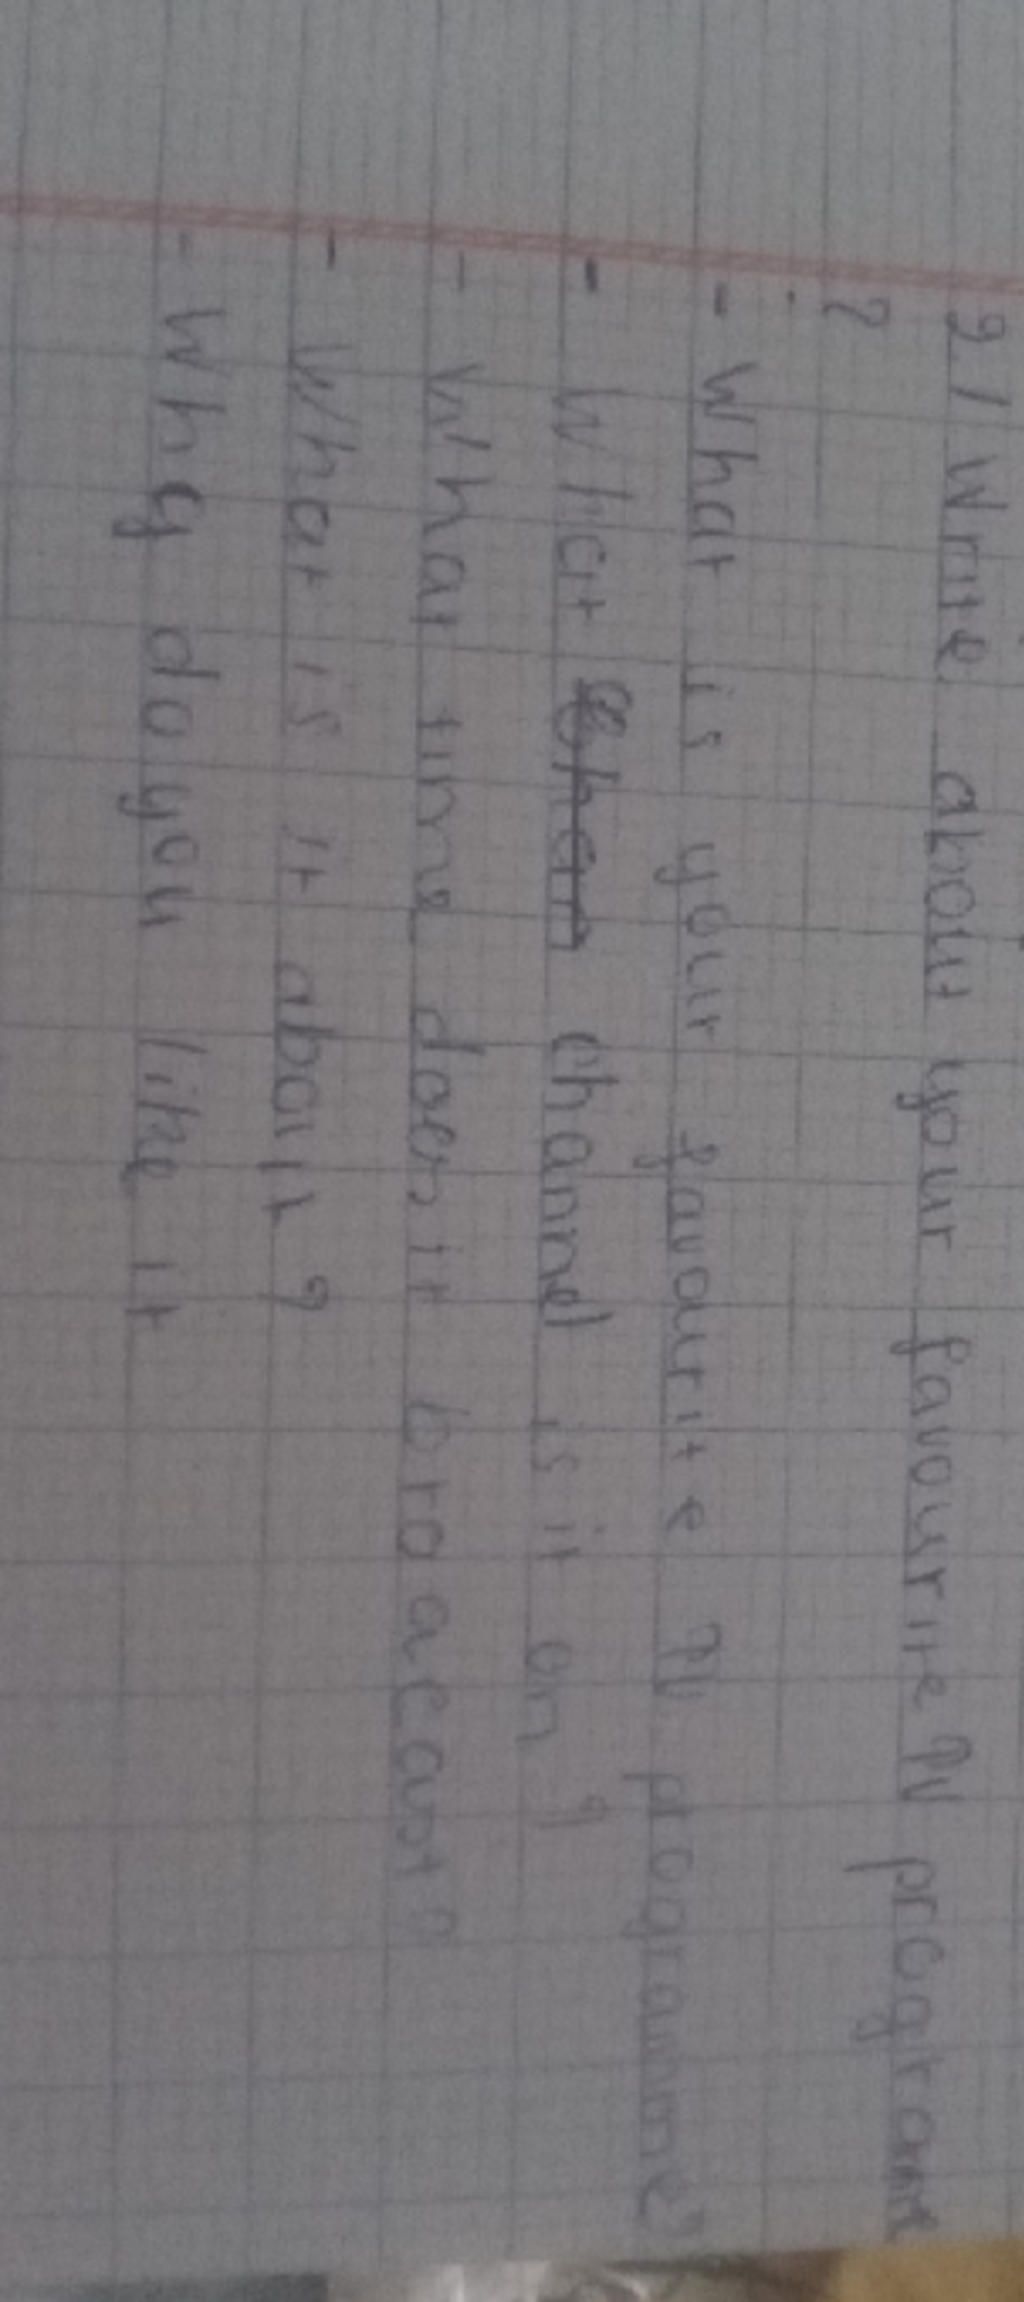 2/ Write about your favourite TV programe
?
- What is your favourite TV programme?
- What channel is it on ?
- What time does it broadcast?
- What is it about ?
- Why do you like it